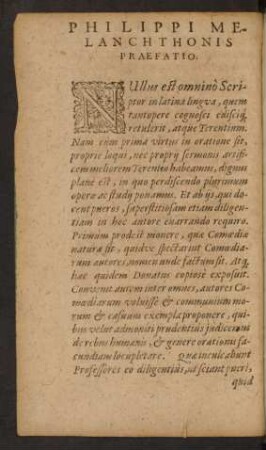 PHILIPPI ME-
LANCHTHONIS
PRAEFATIO.
NUllus est omninò Scri-
ptor in latina lingva, quem
tantopere cognosci eiusciq;
retulerit, atque Terentium.
Nam cùm prima virtus in oratione sit,
propriè loqui, nec proprij sermonis artifi-
cem meliorem Terentio habeamus, dignus
planè est, in quo perdiscendo plurimum
operæ ac studij ponamus. Et ab ijs, qui do-
cent pueros, superstitiosam etiam diligen-
tiam in hoc autore enarrando requiro.
Primùm prodest monere, quæ Comœdiæ
natura sit, quidve spectarint Comœdia-
rum autores, nomen unde factum sit. Atq;
hæc quidem Donatus copiosè exposuit.
Convenit autem inter omnes, autores Co-
mœdiarum voluisse & communium mo-
rum & casuum exempla proponere, qui-
bus velut admoniti prudentius judicemus
de rebus humanis, & genere orationis fa-
cundiam locupletare. Quæ inculcabunt
Professores eo diligentius, ut sciant pueri,
quid